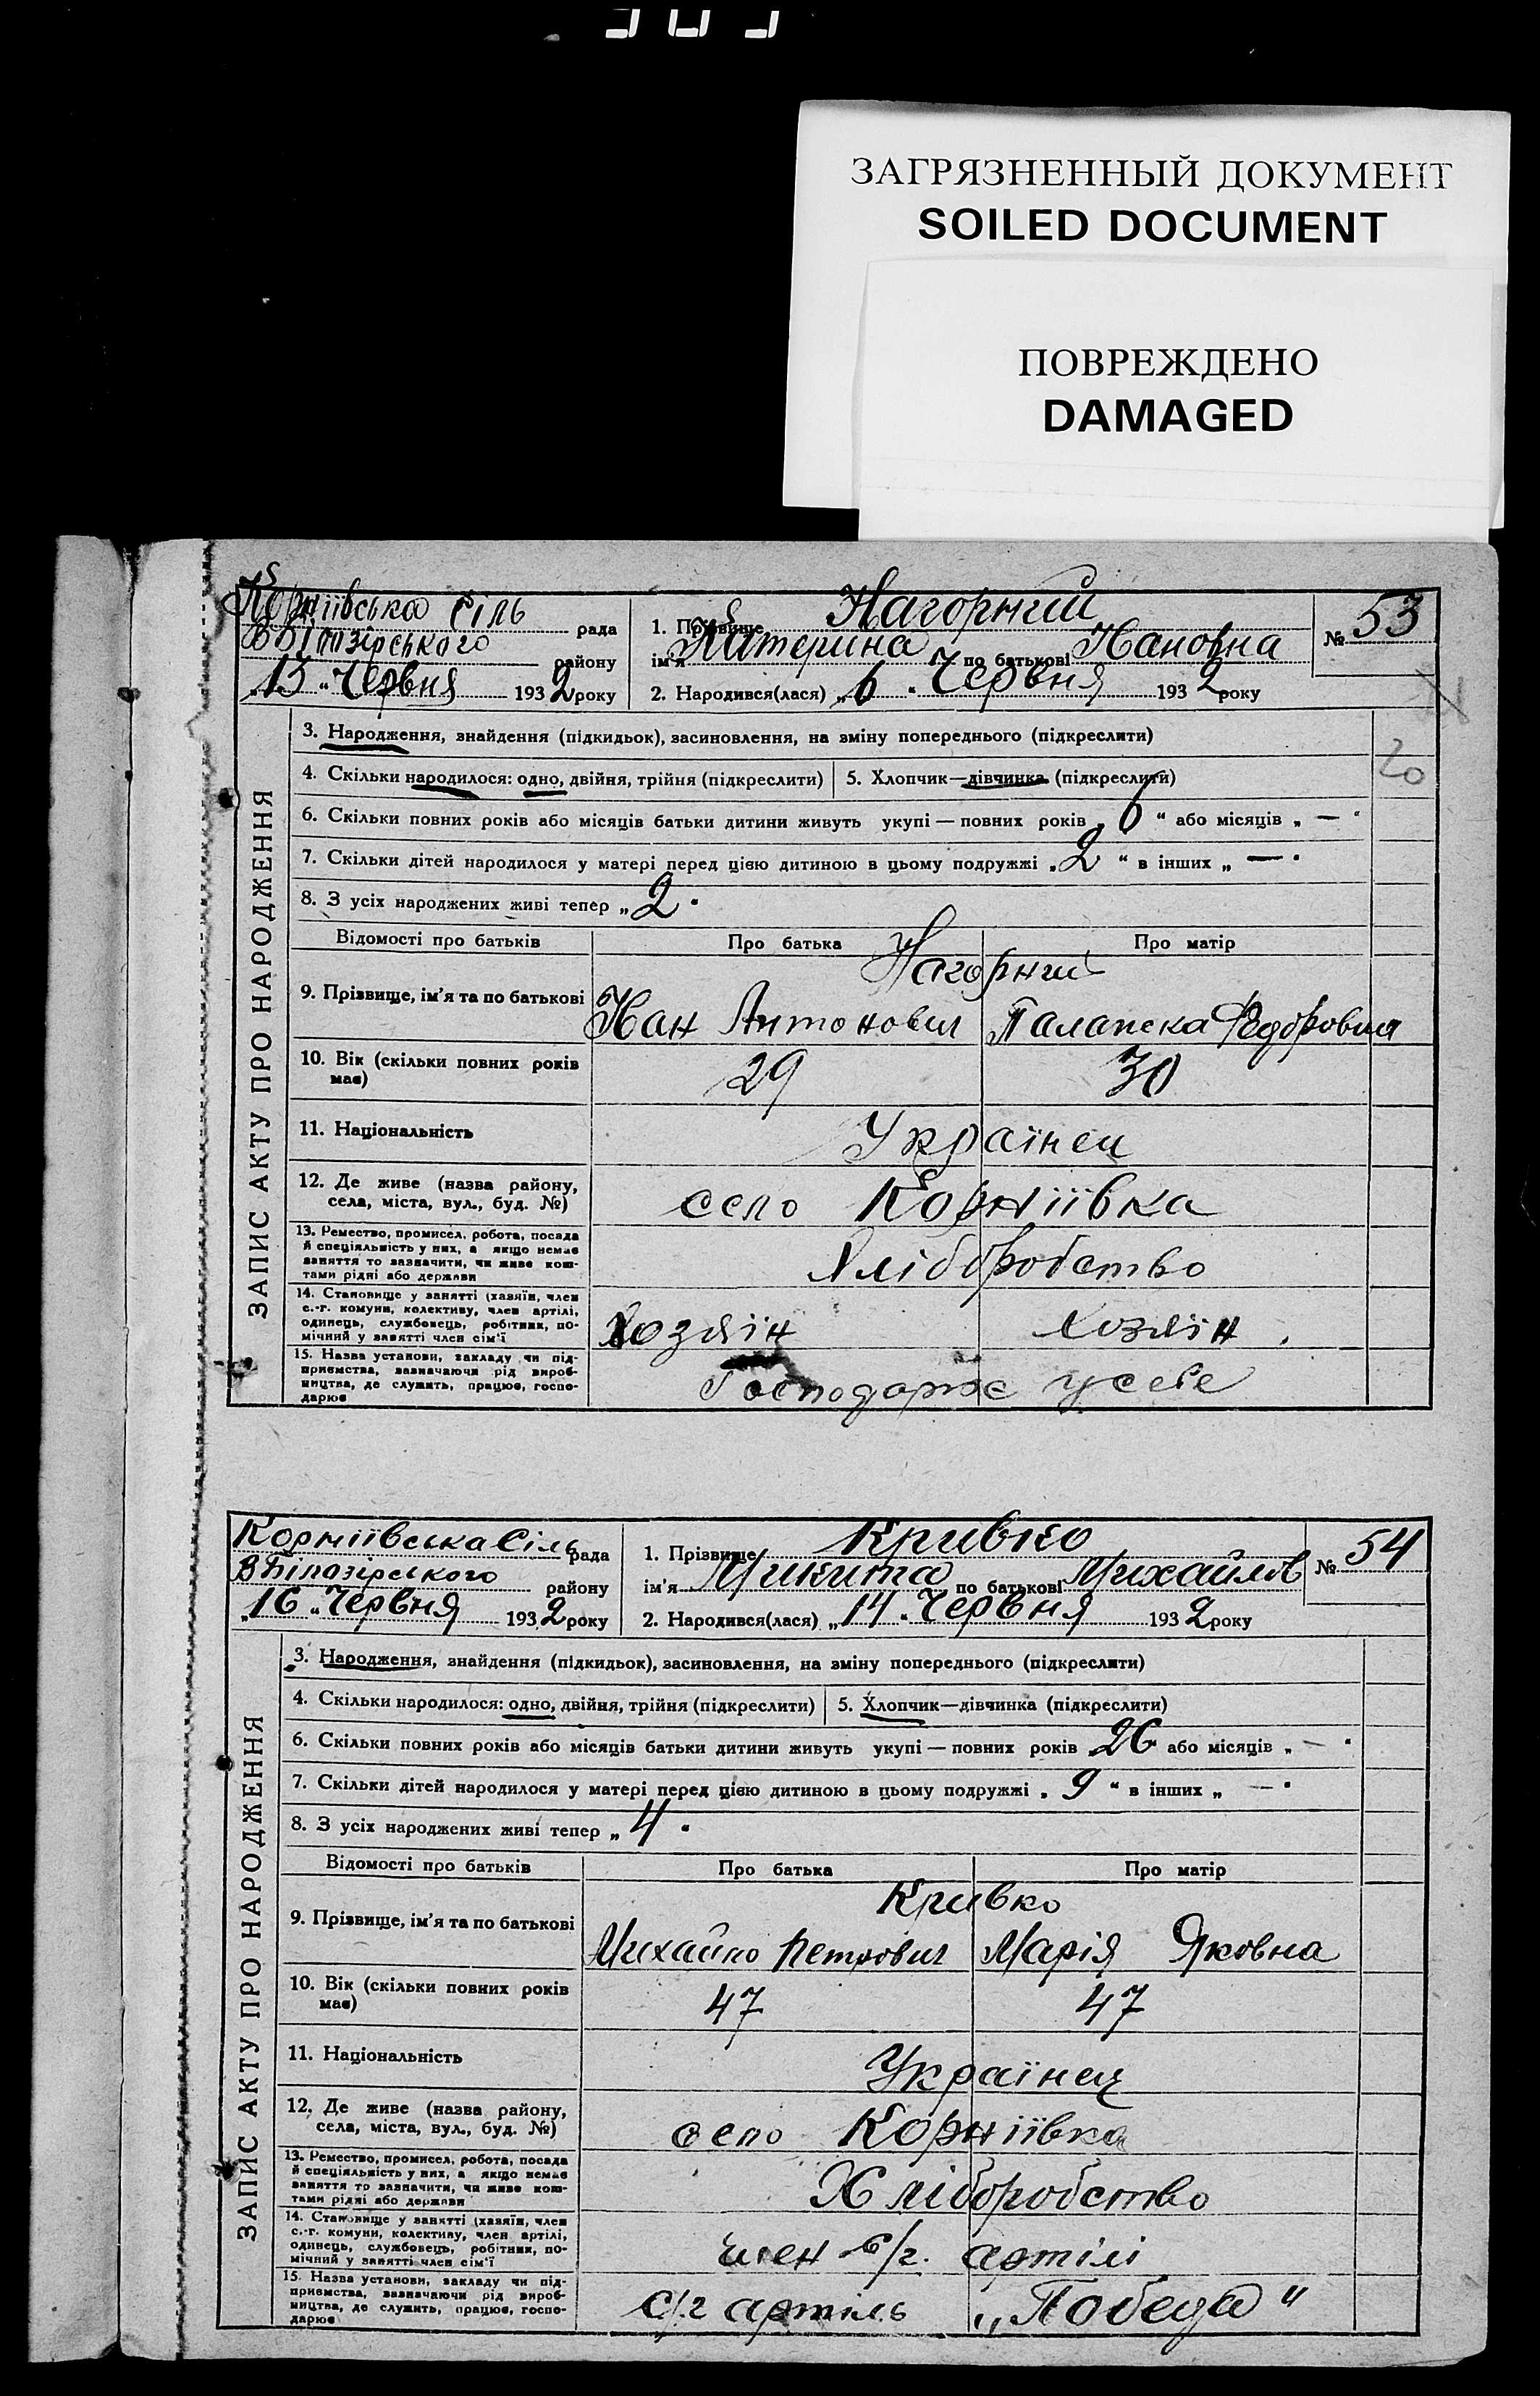 ЗАГРЯЗНЕННЫЙ ДОКУМЕНТ
SOILED DOCUMENT
ПОВРЕЖДЕНО
DAMAGED
Корніївська сіль рада
ВБілозірського району
„13 „ Червня 1932 року
1. Прізвище Нагорний
ім'я Катерина по батькові Івановна
2. Народився(лася) „6 „ Червня 1932 року
№ 53
20
ЗАПИС АКТУ ПРО НАРОДЖЕННЯ
3. Народження, знайдення (підкидьок), засиновлення, на зміну попереднього (підкреслити)
4. Скільки народилося: одно, двійня, трійня (підкреслити) 5. Хлопчик—дівчинка (підкреслити)
6. Скільки повних років або місяців батьки дитини живуть укупі — повних років „ 6 “ або місяців „ — “
7. Скільки дітей народилося у матері перед цією дитиною в цьому подружжі „ 2 “ в інших „ — “
8. З усіх народжених живі тепер „ 2 “
Відомості про батьків Про батька Про матір
9. Прізвище, ім'я та по батькові Нагорний
Іван Антонович Палажка Федоровна
10. Вік (скільки повних років має) 29 30
11. Національність Українец
12. Де живе (назва району, села, міста, вул., буд. №) село Корніївка
13. Ремество, промисел, робота, посада й спеціяльність у них, а якщо немає заняття то зазначити, чи живе коштами рідні або держави Хліборобство
14. Становище у занятті (хазяїн, член с.-г. комуни, колективу, член артілі, одинець, службовець, робітник, помічний у занятті член сім'ї Хозяін Хозяін
15. Назва установи, закладу чи підприємства, зазначаючи рід виробництва, де служить, працює, господарює Господарює у себе
Корніївська сіль рада
ВБілозірського району
„16 „ Червня 1932 року
1. Прізвище Кривко
ім'я Микита по батькові Михайлов
2. Народився(лася) „14 „ Червня 1932 року
№ 54
ЗАПИС АКТУ ПРО НАРОДЖЕННЯ
3. Народження, знайдення (підкидьок), засиновлення, на зміну попереднього (підкреслити)
4. Скільки народилося: одно, двійня, трійня (підкреслити) 5. Хлопчик—дівчинка (підкреслити)
6. Скільки повних років або місяців батьки дитини живуть укупі — повних років 26 або місяців „ — “
7. Скільки дітей народилося у матері перед цією дитиною в цьому подружжі „ 9 “ в інших „ — “
8. З усіх народжених живі тепер „ 4 “
Відомості про батьків Про батька Про матір
9. Прізвище, ім'я та по батькові Кривко
Михайло Петрович Марія Яковна
10. Вік (скільки повних років має) 47 47
11. Національність Українец
12. Де живе (назва району, села, міста, вул., буд. №) село Корніївка
13. Ремество, промисел, робота, посада й спеціяльність у них, а якщо немає заняття то зазначити, чи живе коштами рідні або держави Хліборобство
14. Становище у занятті (хазяїн, член с.-г. комуни, колективу, член артілі, одинець, службовець, робітник, помічний у занятті член сім'ї член с/г. артілі
15. Назва установи, закладу чи підприємства, зазначаючи рід виробництва, де служить, працює, господарює с/г артіль „Победа“